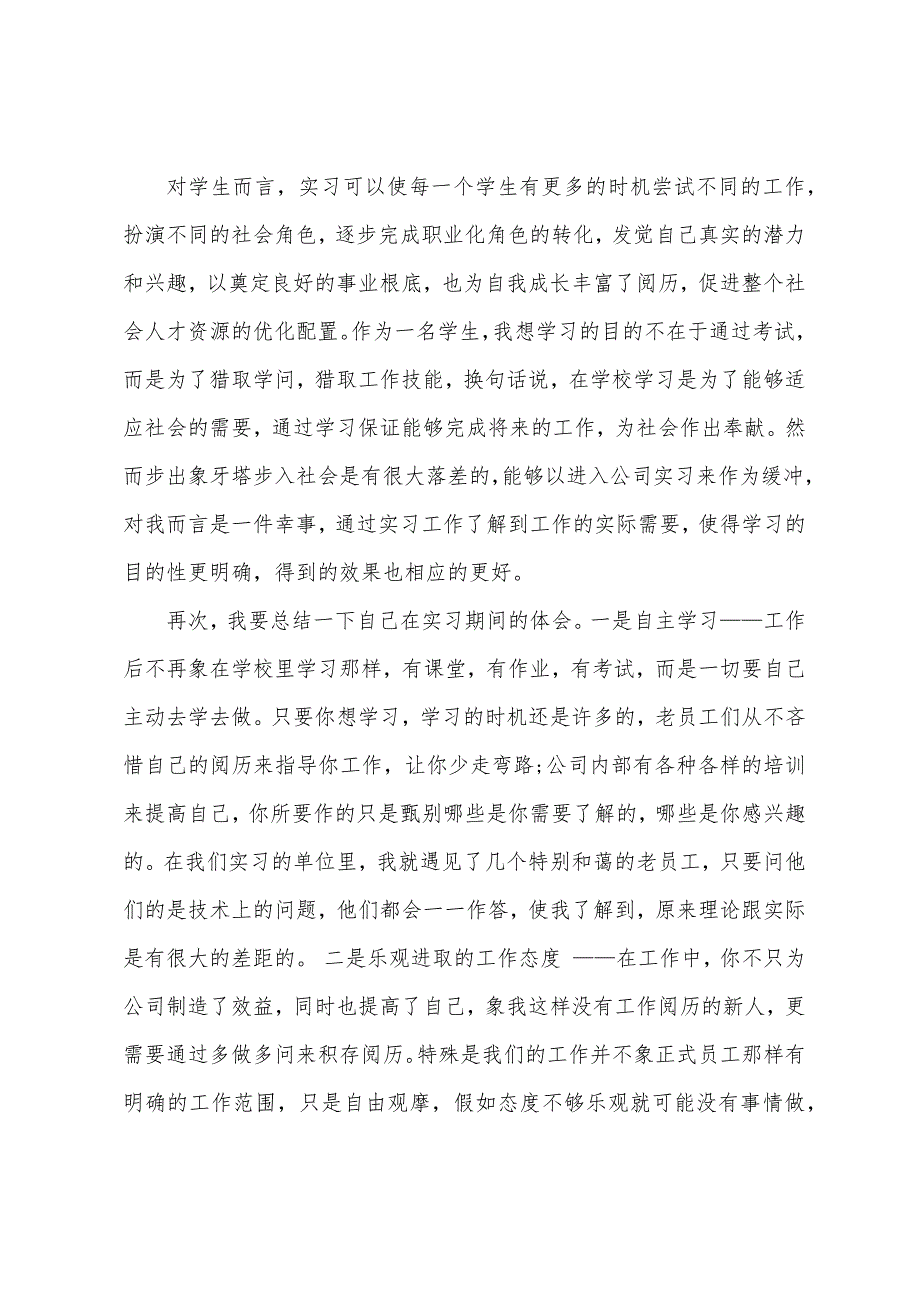 对学生而言，实习可以使每一个学生有更多的时机尝试不同的工作，
扮演不同的社会角色，逐步完成职业化角色的转化，发觉自己真实的潜力
和兴趣，以奠定良好的事业根底，也为自我成长丰富了阅历，促进整个社
会人才资源的优化配置。作为一名学生，我想学习的目的不在于通过考试，
而是为了猎取学问，猎取工作技能，换句话说，在学校学习是为了能够适
应社会的需要，通过学习保证能够完成将来的工作，为社会作出奉献。然
而步出象牙塔步入社会是有很大落差的，能够以进入公司实习来作为缓冲，
对我而言是一件幸事，通过实习工作了解到工作的实际需要，使得学习的
目的性更明确，得到的效果也相应的更好。
再次，我要总结一下自己在实习期间的体会。一是自主学习——工作
后不再象在学校里学习那样，有课堂，有作业，有考试，而是一切要自己
主动去学去做。只要你想学习，学习的时机还是许多的，老员工们从不吝
惜自己的阅历来指导你工作，让你少走弯路;公司内部有各种各样的培训
来提高自己，你所要作的只是甄别哪些是你需要了解的，哪些是你感兴趣
的。在我们实习的单位里，我就遇见了几个特别和蔼的老员工，只要问他
们的是技术上的问题，他们都会一一作答，使我了解到，原来理论跟实际
是有很大的差距的。 二是乐观进取的工作态度 ——在工作中，你不只为
公司制造了效益，同时也提高了自己，象我这样没有工作阅历的新人，更
需要通过多做多问来积存阅历。特殊是我们的工作并不象正式员工那样有
明确的工作范围，只是自由观摩，假如态度不够乐观就可能没有事情做，